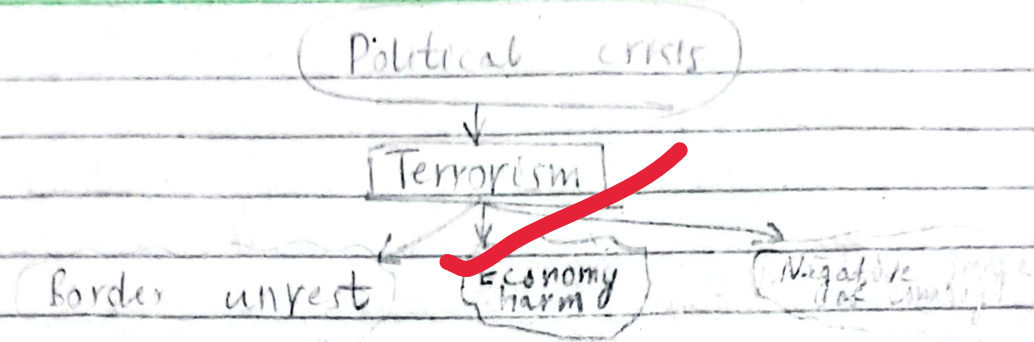 Political crisis
Terrorism
Border unrest
Economy
harm
Negative